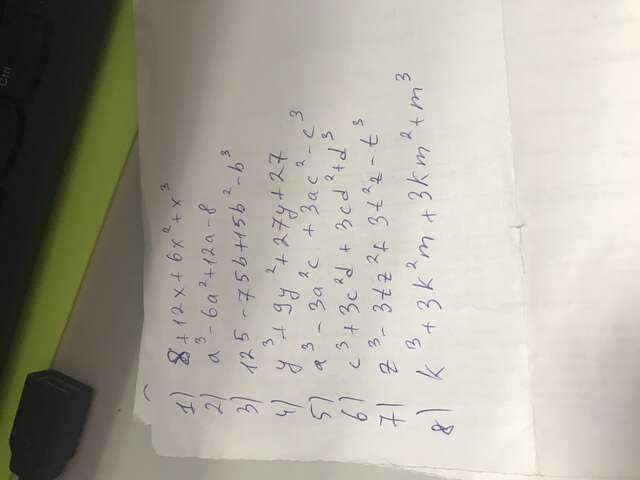 Ctrl
1) 8 + 12x + 6x² + x³
2) a³ - 6a² + 12a - 8
3) 125 - 75b + 15b² - b³
4) y³ + 9y² + 27y + 27
5) a³ - 3a²c + 3ac² - c³
6) c³ + 3c²d + 3cd² + d³
7) z³ - 3tz² + 3t²z - t³
8) k³ + 3k²m + 3km² + m³